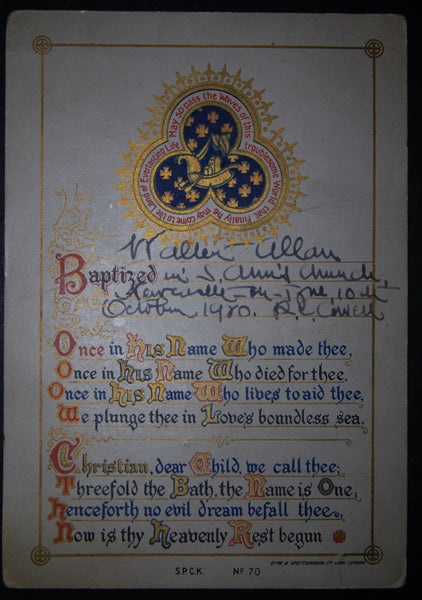 May so pass the Waves of this troublesome World that Finally he may come to the Land of Everlasting Life
Walter Allan
Baptized in S. Ann's Church,
Newcastle-on-Tyne, 10th
October 1920.
Once in His Name Who made thee,
Once in His Name Who died for thee,
Once in His Name Who lives to aid thee,
We plunge thee in Love's boundless sea.
Christian, dear Child, we call thee;
Threefold the Bath, the Name is One;
Henceforth no evil dream befall thee,
Now is thy Heavenly Rest begun
EYRE & SPOTTISWOODE, LTD. LITH. LONDON.
S.P.C.K. No 70